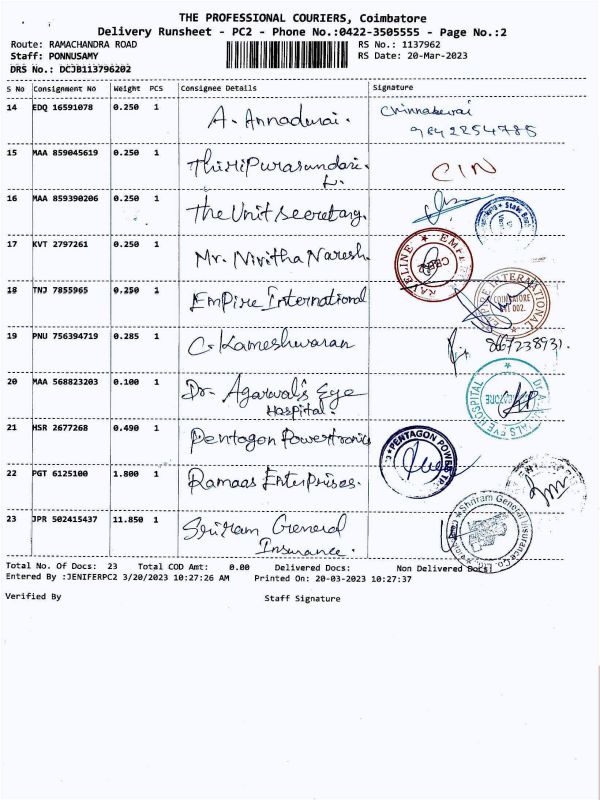 THE PROFESSIONAL COURIERS, Coimbatore
Delivery Runsheet - PC2 - Phone No.:0422-3505555 - Page No.:2
Route: RAMACHANDRA ROAD
RS No.: 1137962
Staff: PONNUSAMY
RS Date: 20-Mar-2023
DRS No.: DCJB113796202
S No Consignment No Weight PCS Consignee Details Signature
14 EDQ 16591078 0.250 1 A. Annadurai. Chinnadurai
9842254785
15 MAA 859045619 0.250 1 Thiripurasundari. CIN
L.
16 MAA 859390206 0.250 1 The Unit Secretary. State Bank
17 KVT 2797261 0.250 1 Mr. Nivitha Naresh
18 TNJ 7855965 0.250 1 Empire International EMPIRE INTERNATIONAL
COIMBATORE
641 002.
19 PNU 756394719 0.285 1 C. Kameshwaran 8667238931.
20 MAA 568823203 0.100 1 Dr. Agarwal's Eye
Hospital. Dr. AGARWALS EYE HOSPITAL
21 HSR 2677268 0.490 1 Pentagon Powertronics PENTAGON POWERTR
22 PGT 6125100 1.800 1 Ramaas Enterprises.
23 JPR 502415437 11.850 1 Sriram General
Insurance. Shriram General Insurance Co. Ltd.
Total No. Of Docs: 23 Total COD Amt: 0.00 Delivered Docs: Non Delivered Docs:
Entered By :JENIFERPC2 3/20/2023 10:27:26 AM Printed On: 20-03-2023 10:27:37
Verified By Staff Signature